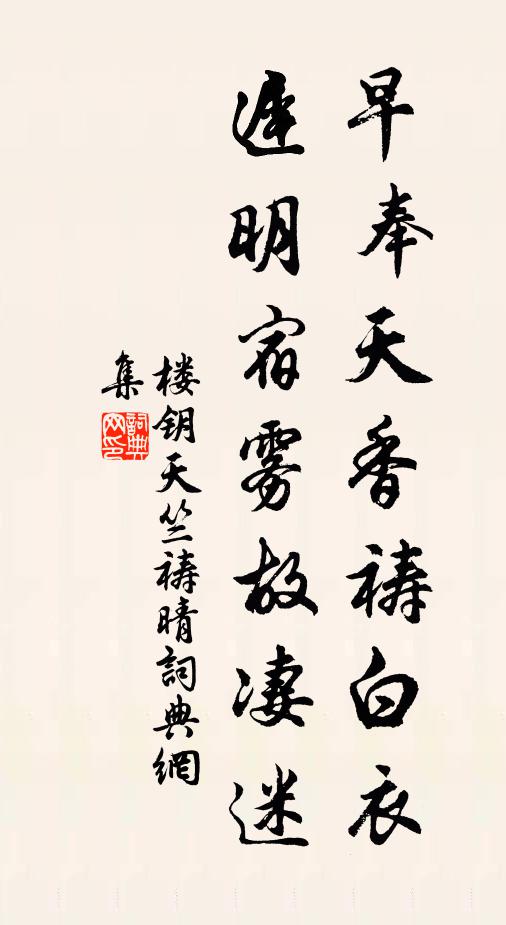 早奉天香祷白衣
遅明宿雾故凄迷
楼钥天竺祷晴詞典網
集
詞典
网印